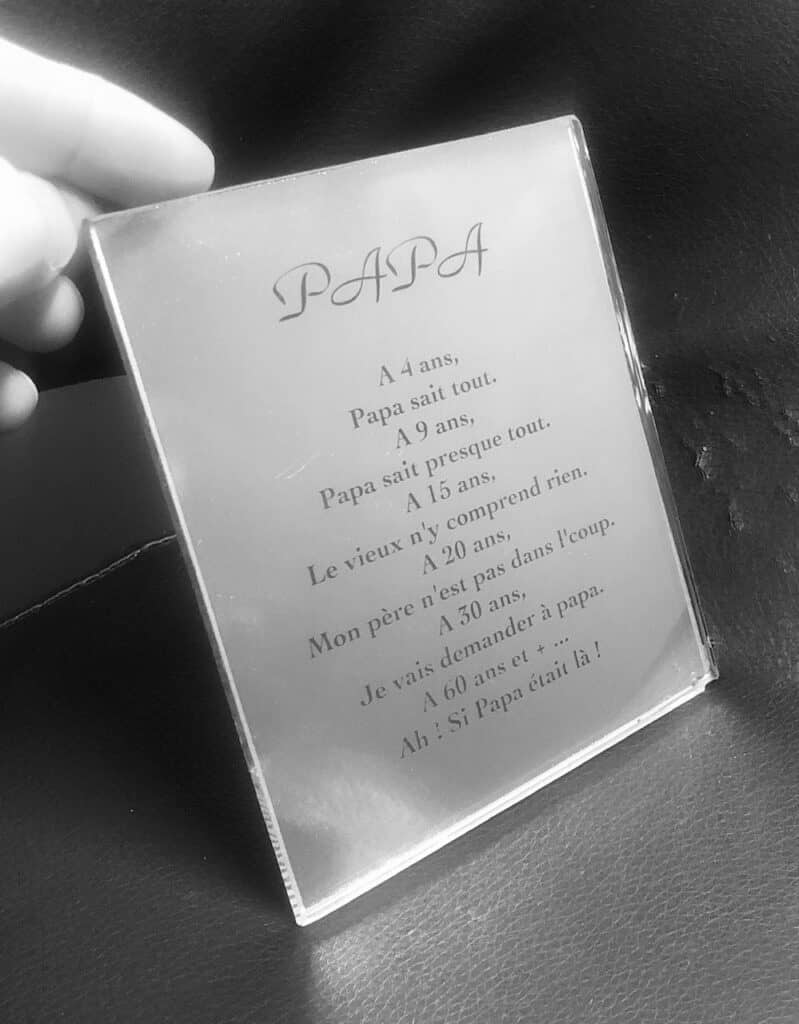 PAPA
A 4 ans,
Papa sait tout.
A 9 ans,
Papa sait presque tout.
A 15 ans,
Le vieux n'y comprend rien.
A 20 ans,
Mon père n'est pas dans l'coup.
A 30 ans,
Je vais demander à papa.
A 60 ans et + ...
Ah ! Si Papa était là !